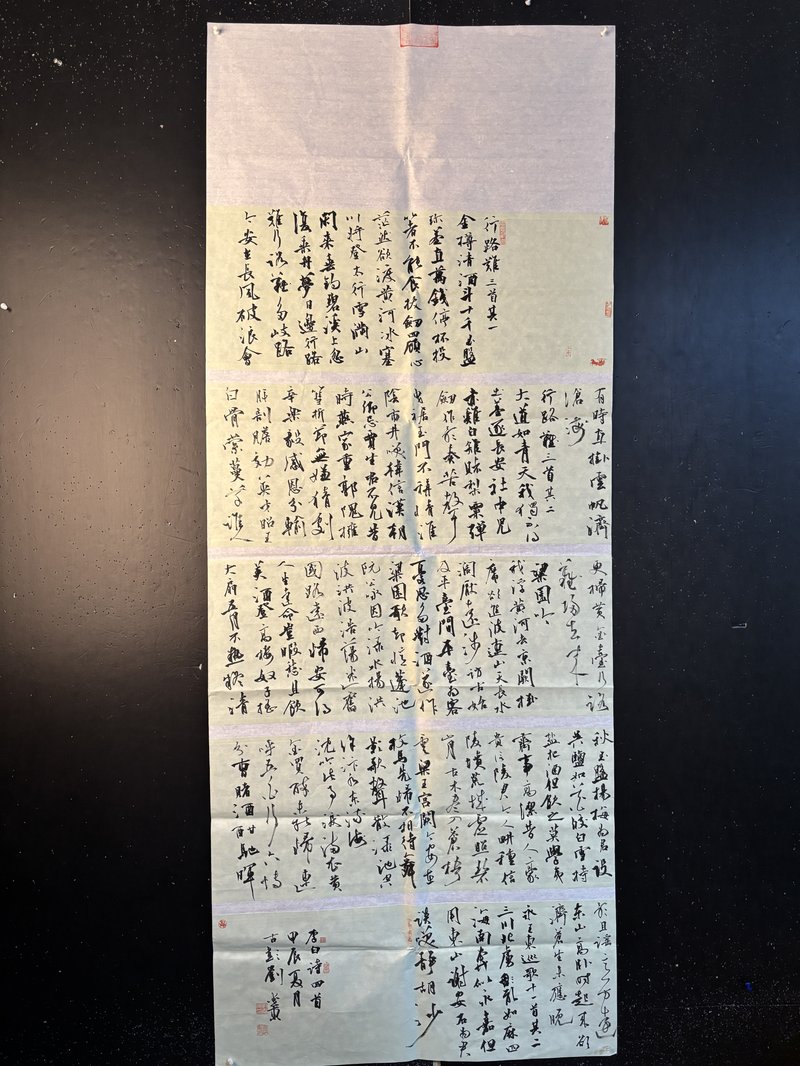 行路難三首其一
金樽清酒斗十千玉盤
珍羞直萬錢停杯投
箸不能食拔劍四顧心
茫然欲渡黃河冰塞
川將登太行雪滿山
閑來垂釣碧溪上忽
復乘舟夢日邊行路
難行路難多歧路
今安在長風破浪會
有時直掛雲帆濟
滄海
行路難三首其二
大道如青天我獨不得
出羞逐長安社中兒
赤雞白雉賭梨栗彈
劍作歌奏苦聲
曳裾王門不稱情淮
陰市井笑韓信漢朝
公卿忌賈生君不見昔
時燕家重郭隗擁
篲折節無嫌猜劇
辛樂毅感恩分輸
肝剖膽效英才昭王
白骨縈蔓草誰人
更掃黃金臺行路
難歸去來
梁園吟
我浮黃河去京闕掛
席欲進波連山天長水
闊厭遠涉訪古始
及平臺間平臺為客
憂思多對酒遂作
梁園歌却憶蓬池
阮公詠因吟淥水揚洪
波洪波浩蕩迷舊
國路遠西歸安可得
人生達命豈暇愁且飲
美酒登高樓奴子搖
大扇五月不熱疑清
秋玉盤楊梅為君設
吳鹽如花皎白雪持
鹽把酒但飲之莫學夷
齊事高潔昔人豪
貴信陵君今人耕種信
陵墳荒城虛照碧
山月古木盡入蒼梧
雲梁王宮闕今安在
枚馬先歸不相待舞
影歌聲散淥池空
餘汴水東流海
沈吟此事淚滿衣黃
金買醉未能歸連
呼五白行六博
分曹賭酒酣馳暉
歌且謠意方遠
東山高臥時起來欲
濟蒼生未應晚
永王東巡歌十一首其二
三川北虜亂如麻四
海南奔似永嘉但
用東山謝安石為君
談笑靜胡沙
李白詩四首
甲辰夏月
古彭劉